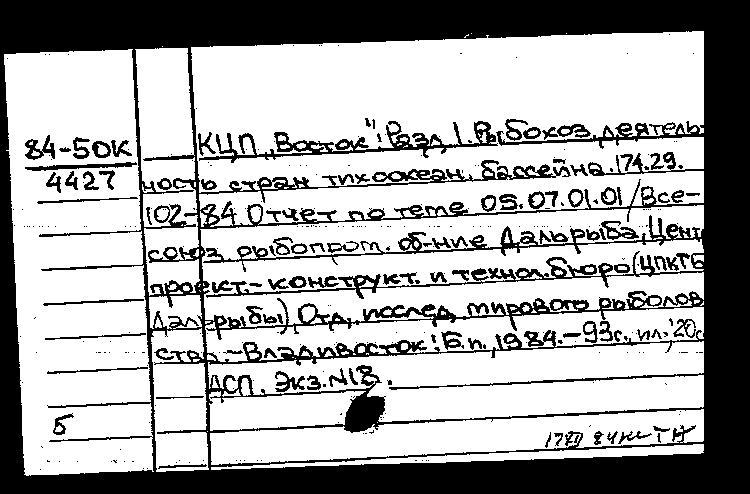 84-5ОК
4427
КЦП „Восток": Разд. 1. Рыбохоз. деятель-
ность стран тихоокеан. бассейна. 174.29.
102-84. Отчет по теме 05.07.01.01/Все-
союз. рыбопром. об-ние Дальрыба, Центр
проект.-конструкт. и технол. бюро (ЦПКТБ
Дальрыбы), Отд. исслед. мирового рыболов
ства.-Владивосток: Б.и., 1984.-93с., ил.; 20с
ДСП. Экз. N18.
Б